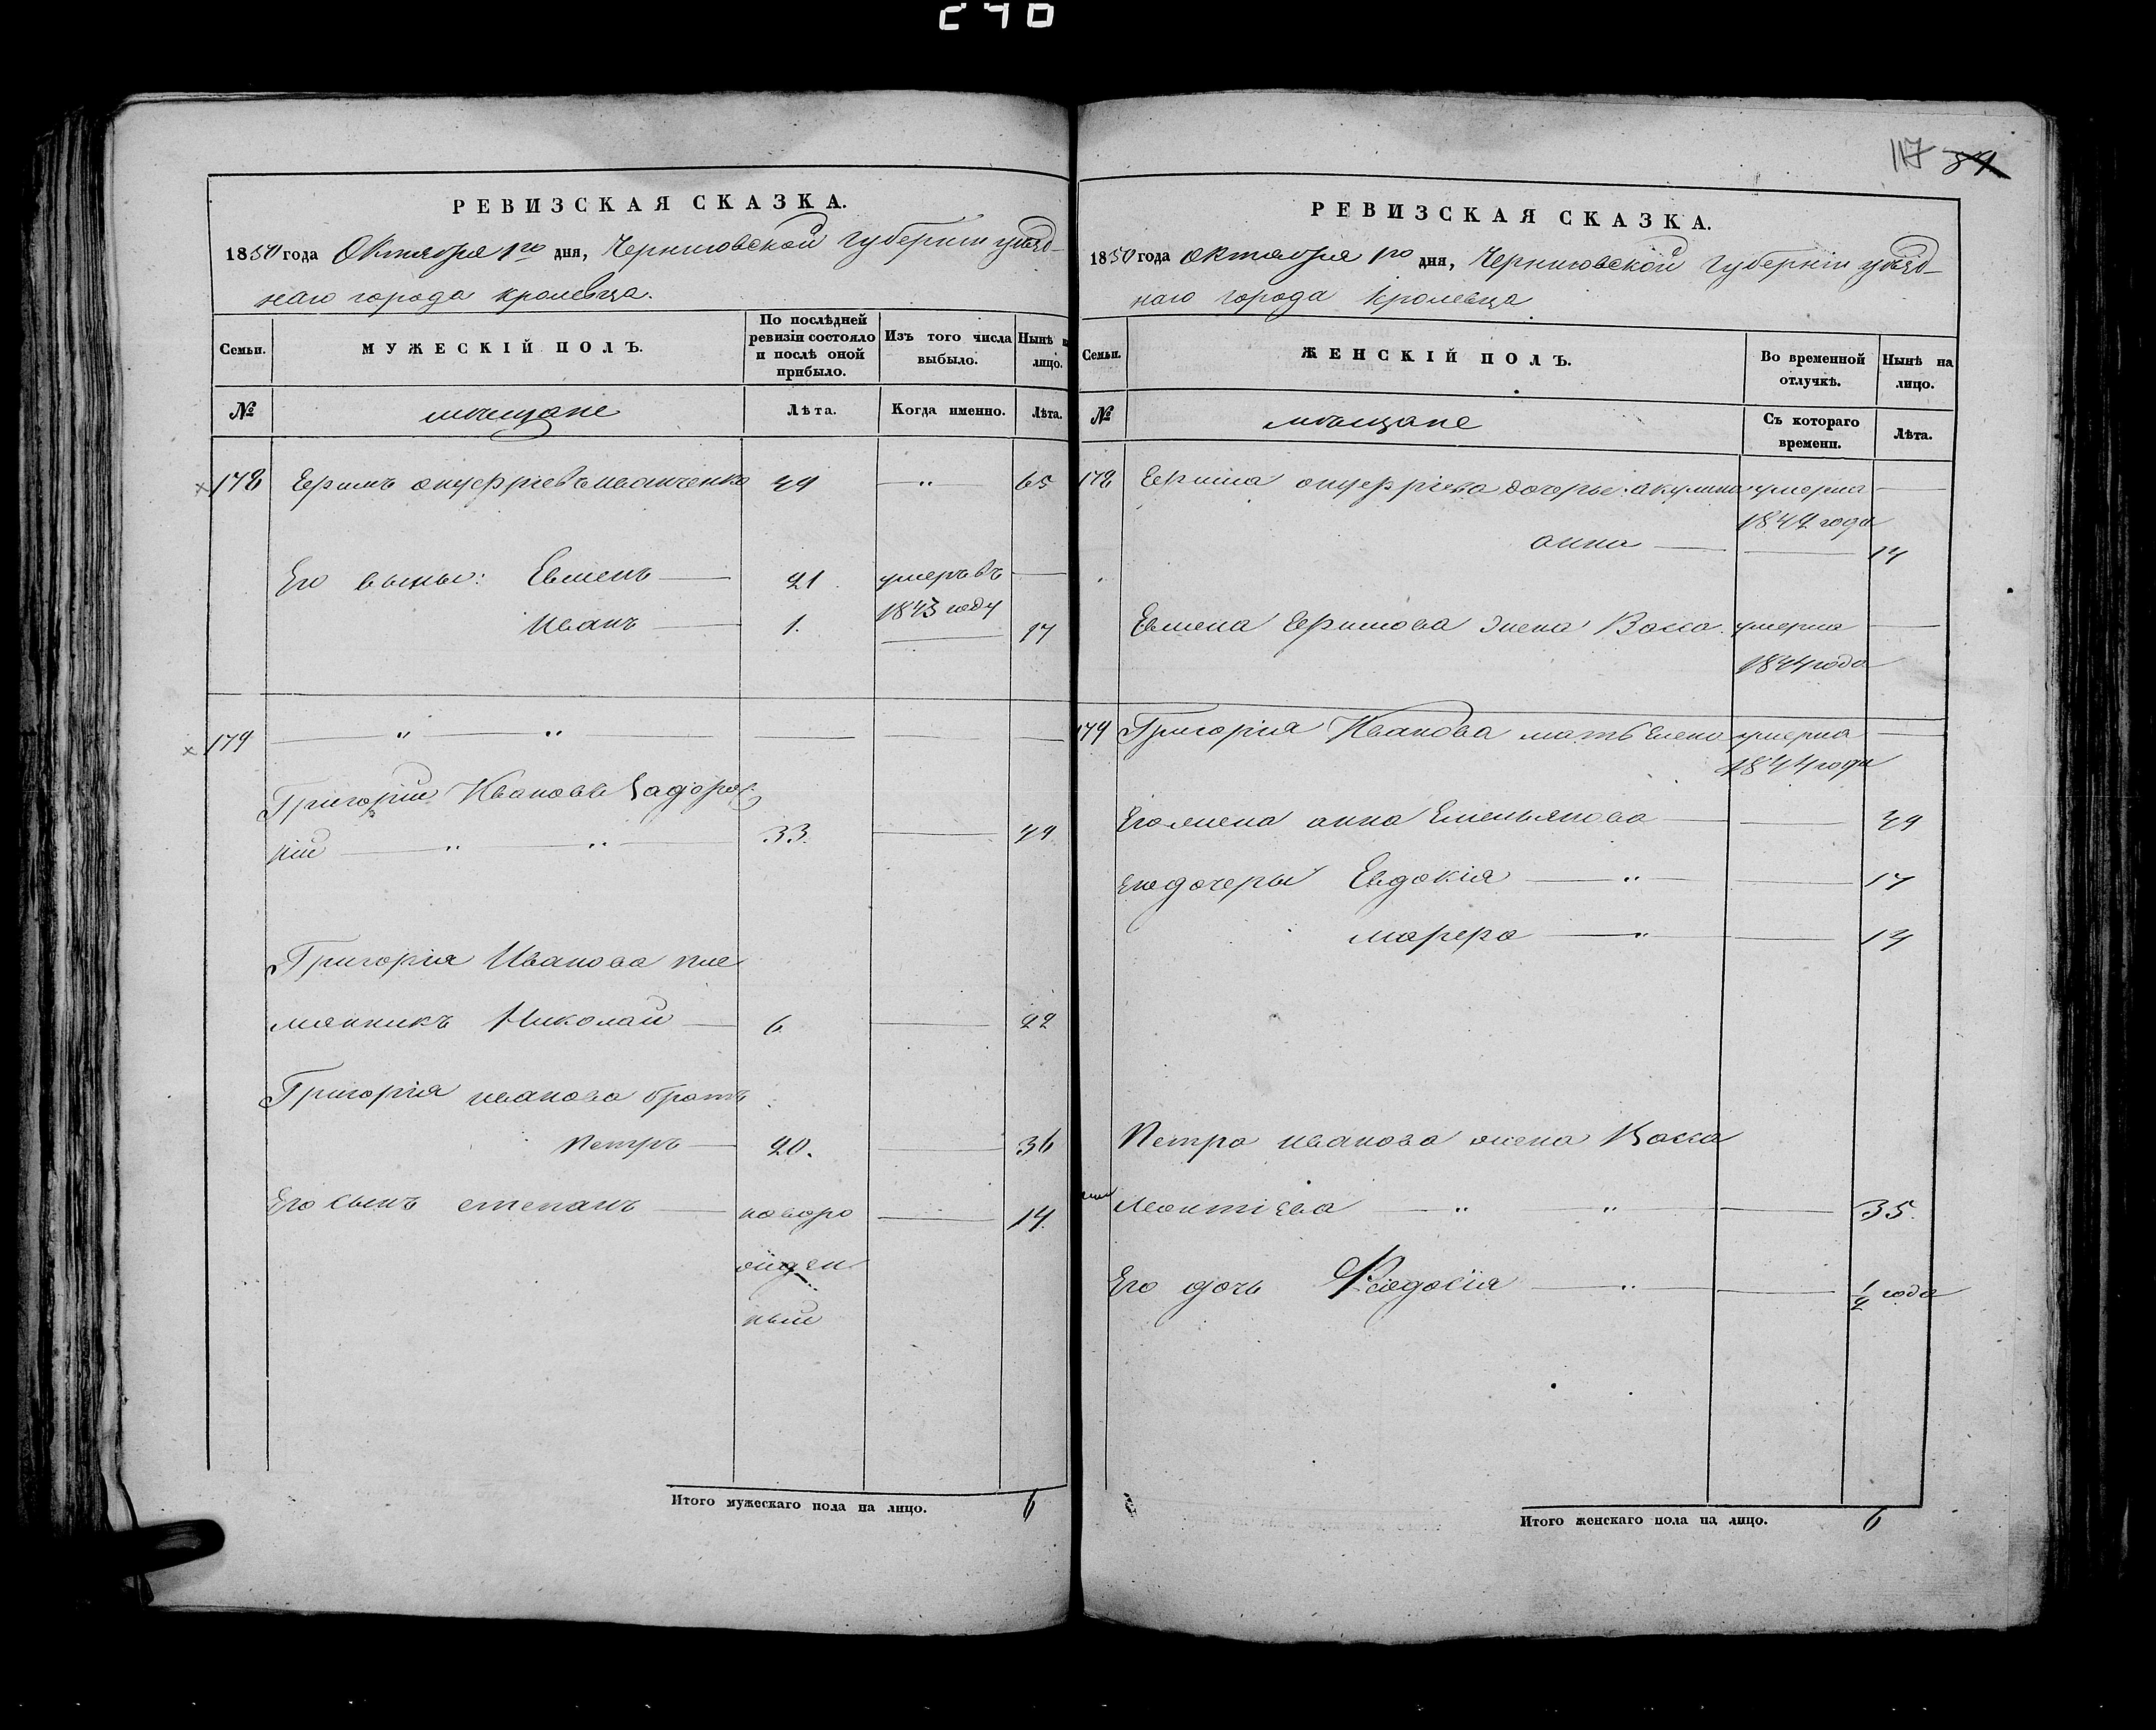 240
РЕВИЗСКАЯ СКАЗКА.
1850 года Октября 1го дня, Черниговской губернии уѣзд-
наго города кролевца.
Семьи.
МУЖЕСКІЙ ПОЛЪ.
По послѣдней ревизіи состояло и послѣ оной прибыло.
Изъ того числа выбыло.
Нынѣ н лицо.
№
мѣщане
Лѣта.
Когда именно.
Лѣта.
178 Ефимъ онуфріевъ иванченко 49 — " — 65
Его сыны: Евменъ — 21 умеръ въ —
1843 году
Иванъ — 1. — 17
179 — " " — — — —
Григорій Ивановъ
ній — " " — 33. — 49
Григорія Иванова пле
мянникъ Николай — 6 — 22
Григорія иванова братъ
Петръ — 20. — 36
Его сынъ степанъ — новоро — 14.
жден
ный
Итого мужескаго пола на лицо. 6
117 84
РЕВИЗСКАЯ СКАЗКА.
1850 года октября 1го дня, Черниговской губерніи уѣзд-
наго города Кролевца
Семьи.
ЖЕНСКІЙ ПОЛЪ.
Во временной отлучкѣ.
Нынѣ на лицо.
№
мѣщане
Съ котораго времени.
Лѣта.
178 Ефима онуфріева дочерье: акулина умерла —
1842 года
анна — — 14
Евмена Ефимова жена Васса умерла —
1844 года
179 Григорія Иванова мать Елена умерла —
1844 года
Его жена анна Емельянова — — 49
Его дочеры Евдокія — " — — 17
марфра — " — — 14
Петра иванова жена Васса
Леонтіева — " " — — 35.
Его дочь Феодосія — " — — 1/2 года
Итого женскаго пола на лицо. 6